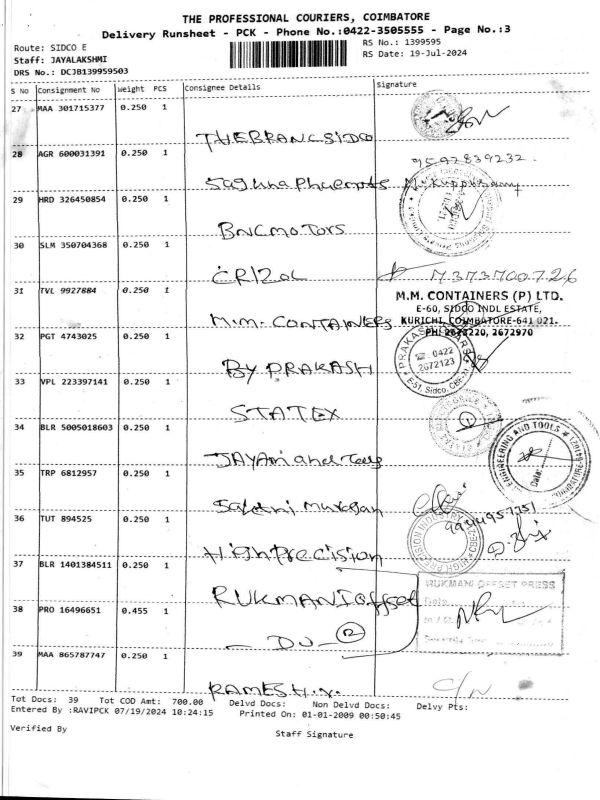 THE PROFESSIONAL COURIERS, COIMBATORE
Delivery Runsheet - PCK - Phone No.:0422-3505555 - Page No.:3
Route: SIDCO E
RS No.: 1399595
Staff: JAYALAKSHMI
RS Date: 19-Jul-2024
DRS No.: DCJB139959503
S No Consignment No Weight PCS Consignee Details Signature
27 MAA 301715377 0.250 1
THEBRANCSIDCO
28 AGR 600031391 0.250 1
9597839232
29 HRD 326450854 0.250 1
BNCMOTORS
30 SLM 350704368 0.250 1
31 TVL 9927884 0.250 1
M.M. CONTAINERS (P) LTD.
E-60, SIDCO INDL ESTATE,
M.M. CONTAINERS
KURICHI, COIMBATORE-641 021.
32 PGT 4743025 0.250 1
PH: 2672220, 2672970
0422
2672123
E-51, Sidco, CBE-21
BY PRAKASH
33 VPL 223397141 0.250 1
STATEX
34 BLR 5005018603 0.250 1
ENGINEERING AND TOOLS
Date:
35 TRP 6812957 0.250 1
36 TUT 894525 0.250 1
HIGH PRECISION INDUSTRY
High Precision
37 BLR 1401384511 0.250 1
RUKMANI OFFSET PRESS
RUKMANI offset
Date
38 PRO 16496651 0.455 1
39 MAA 865787747 0.250 1
C/N
Tot Docs: 39 Tot COD Amt: 700.00 Delvd Docs: Non Delvd Docs: Delvy Pts:
Entered By :RAVIPCK 07/19/2024 10:24:15 Printed On: 01-01-2009 00:50:45
Verified By
Staff Signature